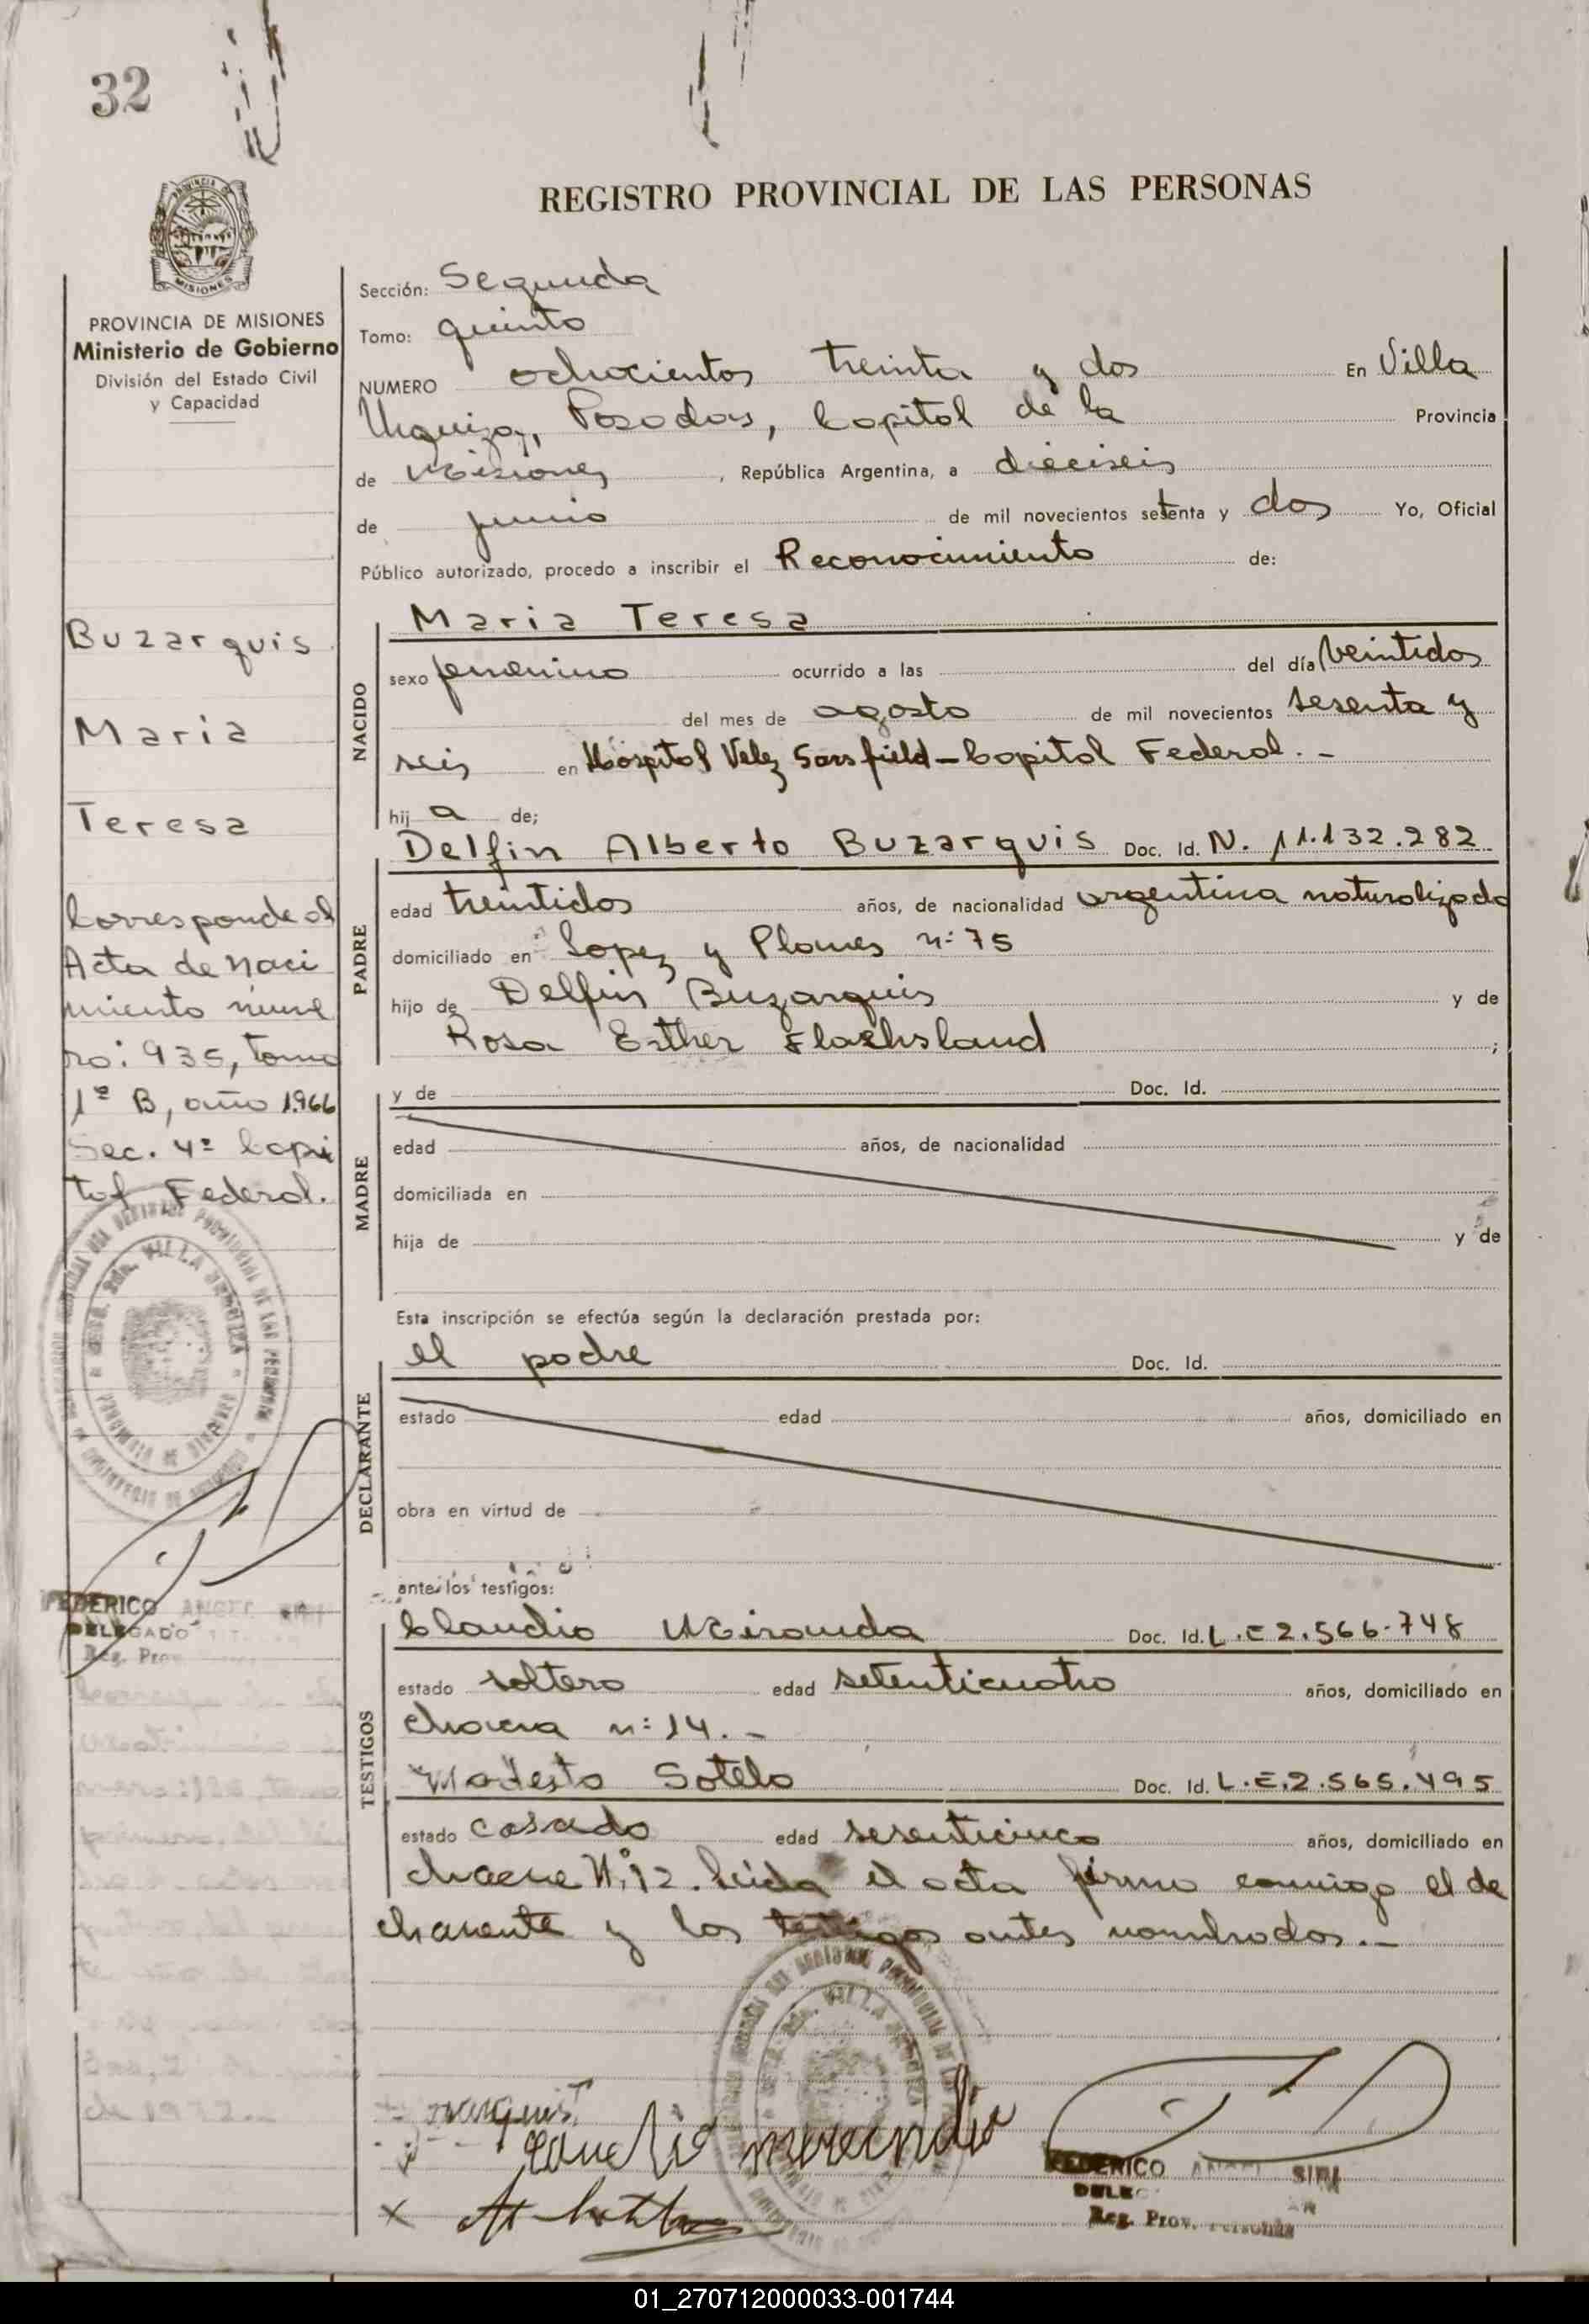 32
REGISTRO PROVINCIAL DE LAS PERSONAS
PROVINCIA DE
MISIONES
PROVINCIA DE MISIONES
Ministerio de Gobierno
División del Estado Civil
y Capacidad
Buzarquis
Maria
Teresa
Corresponde al
Acta de naci
miento núme
ro: 935, tomo
1º B, año 1966
Sec. 4ª Capi
tal Federal.
FEDERICO ANGEL SIRI
DELEGADO
Reg. Prov.
Sección: Segunda
Tomo: quinto
NUMERO ochocientos treinta y dos En Villa
Urquiza, Posadas, Capital de la Provincia
de Misiones, República Argentina, a dieciseis
de junio de mil novecientos setenta y dos Yo, Oficial
Público autorizado, procedo a inscribir el Reconocimiento de:
NACIDO
Maria Teresa
sexo femenino ocurrido a las del día veintidos
del mes de agosto de mil novecientos sesenta y
seis en Hospital Velez Sarsfield - Capital Federal. -
hij a de;
PADRE
Delfin Alberto Buzarquis Doc. Id. N. 11.132.282
edad treintidos años, de nacionalidad argentina naturalizado
domiciliado en Lopez y Planes n: 75
hijo de Delfin Buzarquis y de
Rosa Esther Flachsland ;
MADRE
y de Doc. Id.
edad años, de nacionalidad
domiciliada en
hija de y de
Esta inscripción se efectúa según la declaración prestada por:
DECLARANTE
el padre Doc. Id.
estado edad años, domiciliado en
obra en virtud de
ante los testigos:
TESTIGOS
Claudio Miranda Doc. Id. L.E 2.566.748
estado soltero edad setenticuatro años, domiciliado en
chacra n: 14. -
Modesto Sotelo Doc. Id. L.E.2.565.495
estado casado edad sesenticinco años, domiciliado en
chacra Nº 12. leida el acta firma conmigo el de
clarante y los testigos antes nombrados. -
FEDERICO ANGEL SIRI
Reg. Prov. Personas
01_270712000033-001744